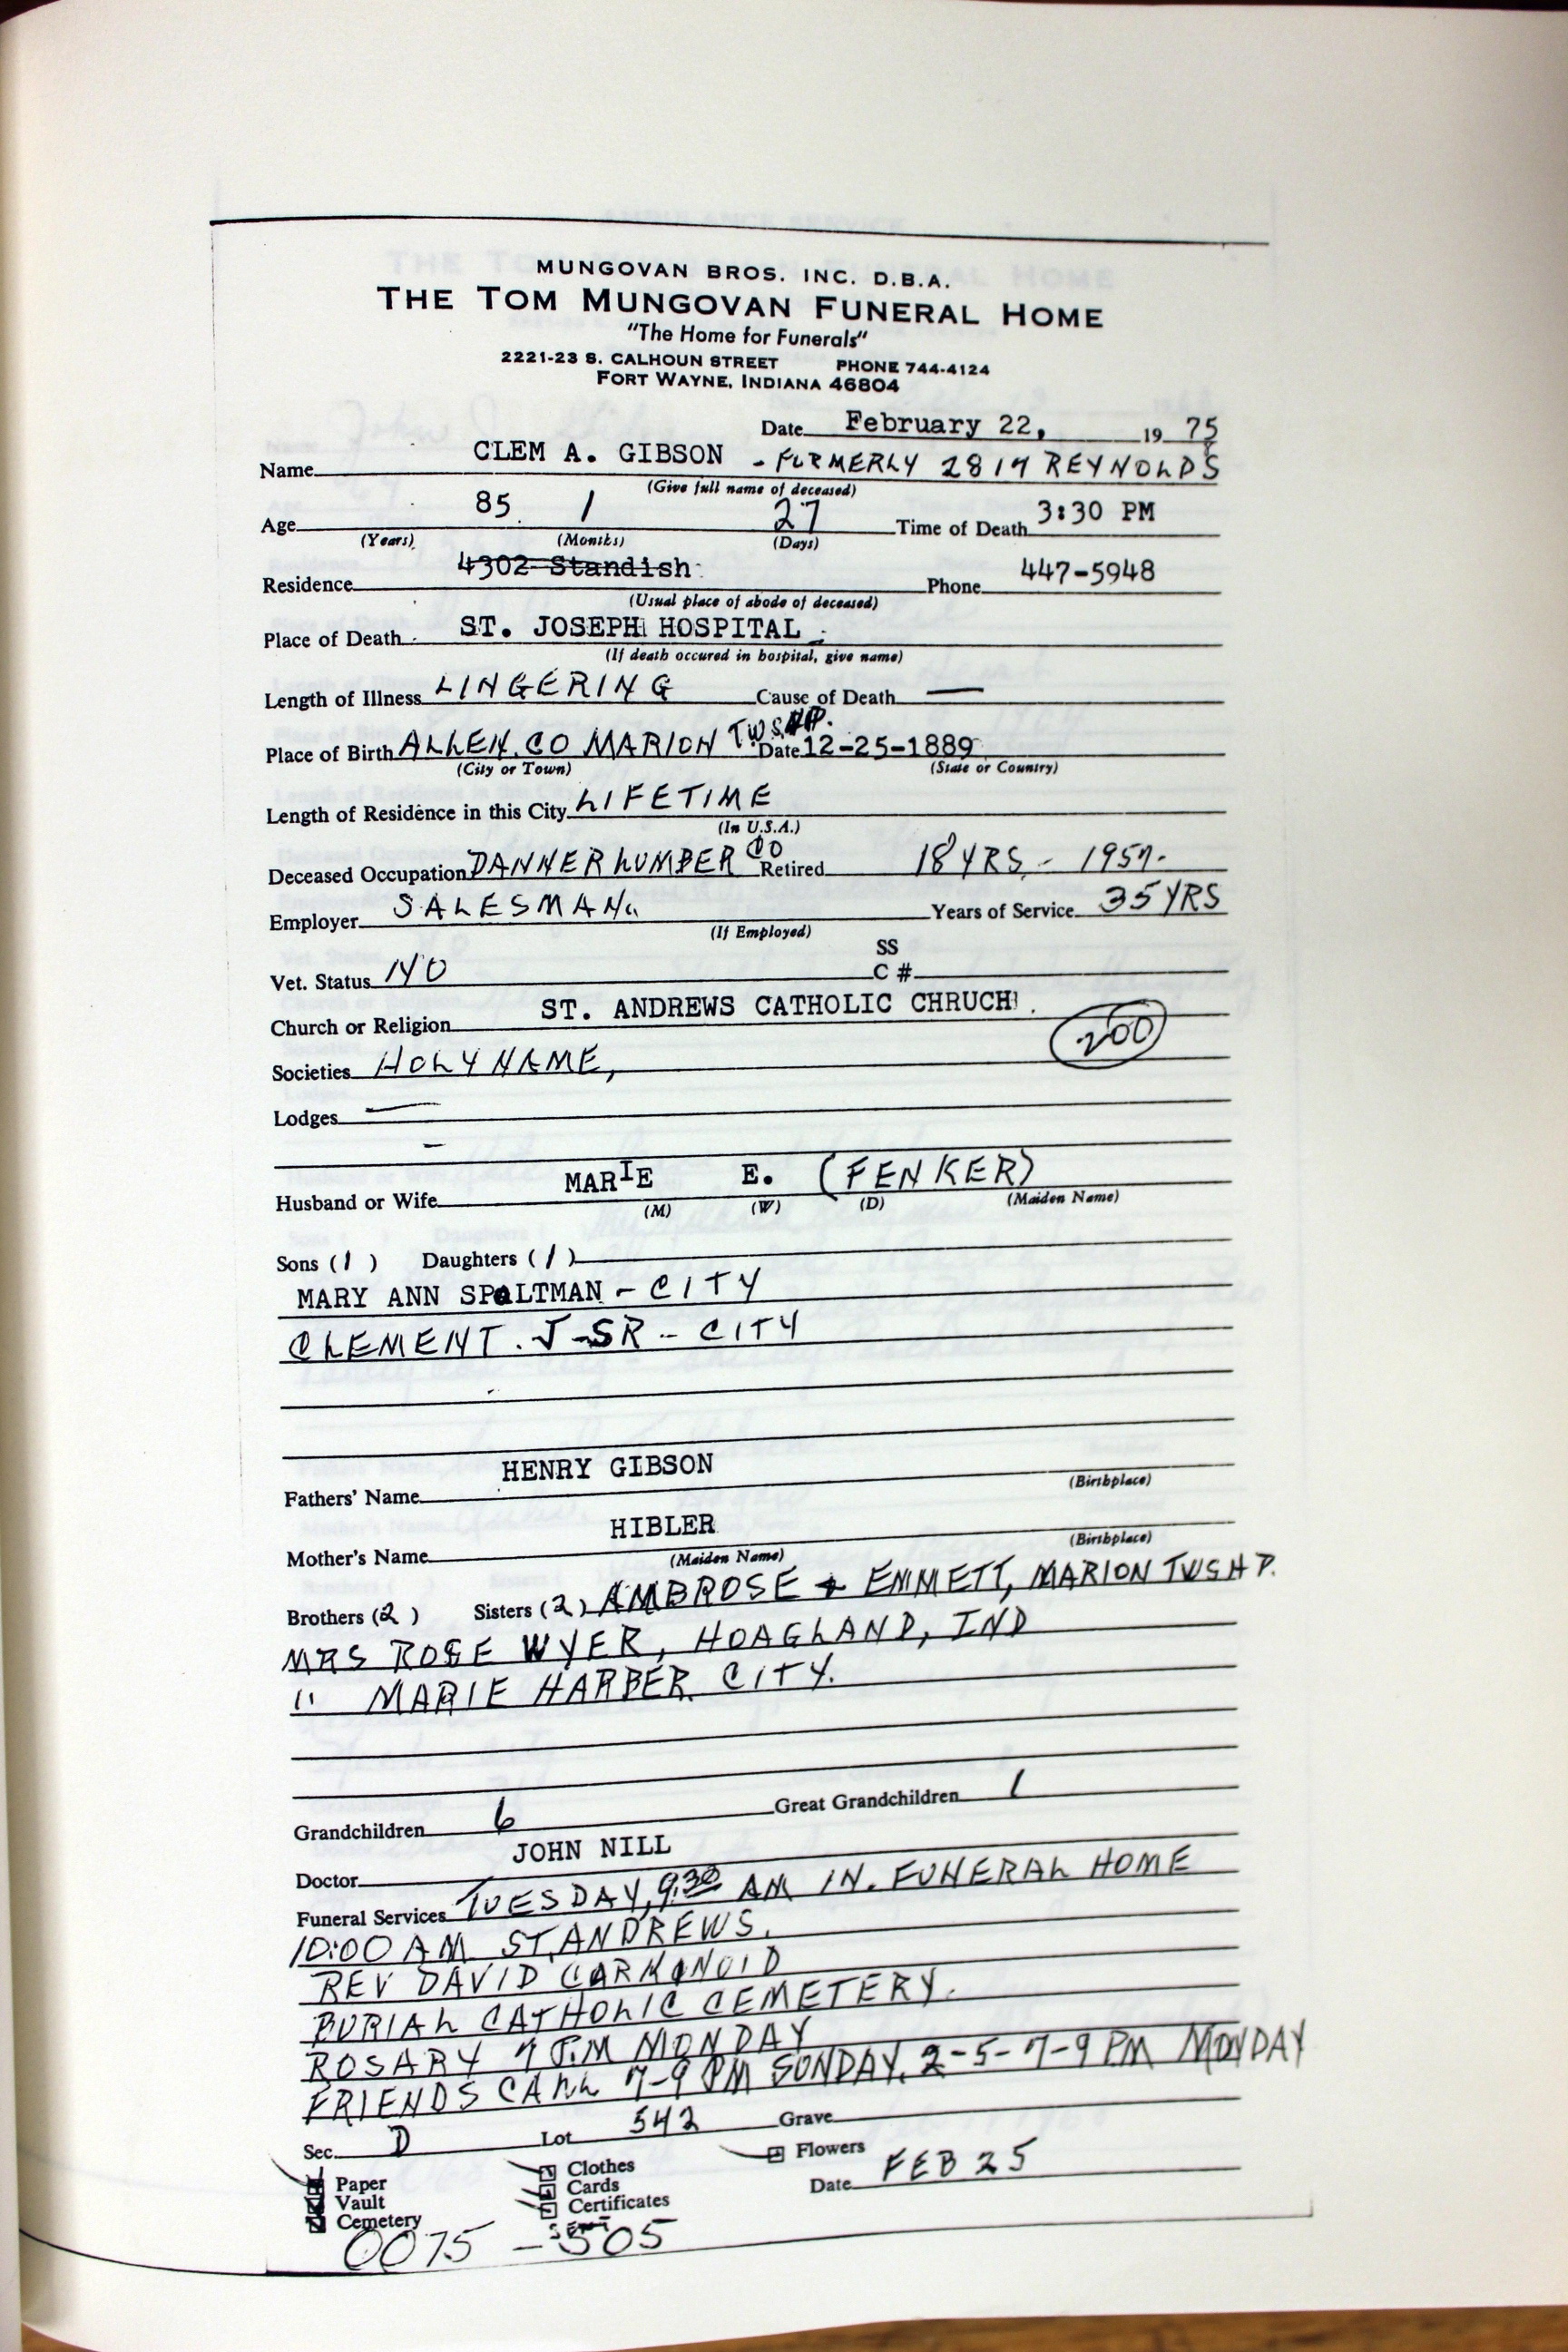 MUNGOVAN BROS. INC. D.B.A.
THE TOM MUNGOVAN FUNERAL HOME
"The Home for Funerals"
2221-23 S. CALHOUN STREET PHONE 744-4124
FORT WAYNE, INDIANA 46804
Date February 22, 19 75
Name CLEM A. GIBSON - FORMERLY 2817 REYNOLDS
(Give full name of deceased)
Age 85 1 27 Time of Death 3:30 PM
(Years) (Months) (Days)
Residence 4302 Standish Phone 447-5948
(Usual place of abode of deceased)
Place of Death ST. JOSEPH HOSPITAL
(If death occured in hospital, give name)
Length of Illness LINGERING Cause of Death —
Place of Birth ALLEN. CO MARION TWSHP. Date 12-25-1889
(City or Town) (State or Country)
Length of Residence in this City LIFETIME
(In U.S.A.)
Deceased Occupation DANNER LUMBER CO Retired 18 YRS - 1957.
Employer SALESMAN. Years of Service 35 YRS
(If Employed)
SS
Vet. Status NO C #
Church or Religion ST. ANDREWS CATHOLIC CHRUCH
200
Societies HOLY NAME,
Lodges —
-
Husband or Wife MARIE E. (FENKER)
(M) (W) (D) (Maiden Name)
Sons (1) Daughters (1)
MARY ANN SPALTMAN - CITY
CLEMENT. J-SR - CITY
HENRY GIBSON
Fathers' Name (Birthplace)
HIBLER
Mother's Name (Maiden Name) (Birthplace)
Brothers (2) Sisters (2) AMBROSE + EMMETT, MARION TWSHP.
MRS ROSE WYER, HOAGLAND, IND
" MARIE HARBER CITY.
Grandchildren 6 Great Grandchildren 1
Doctor JOHN NILL
Funeral Services TUESDAY, 9:30 AM IN. FUNERAL HOME
10:00 AM ST. ANDREWS.
REV DAVID
BURIAL CATHOLIC CEMETERY.
ROSARY 7 P.M MONDAY
FRIENDS CALL 7-9 PM SUNDAY, 2-5-7-9 PM MONDAY
Sec. D Lot 542 Grave
Paper Clothes Flowers
Vault Cards Date FEB 25
Cemetery Certificates
SENT
0075 - 505